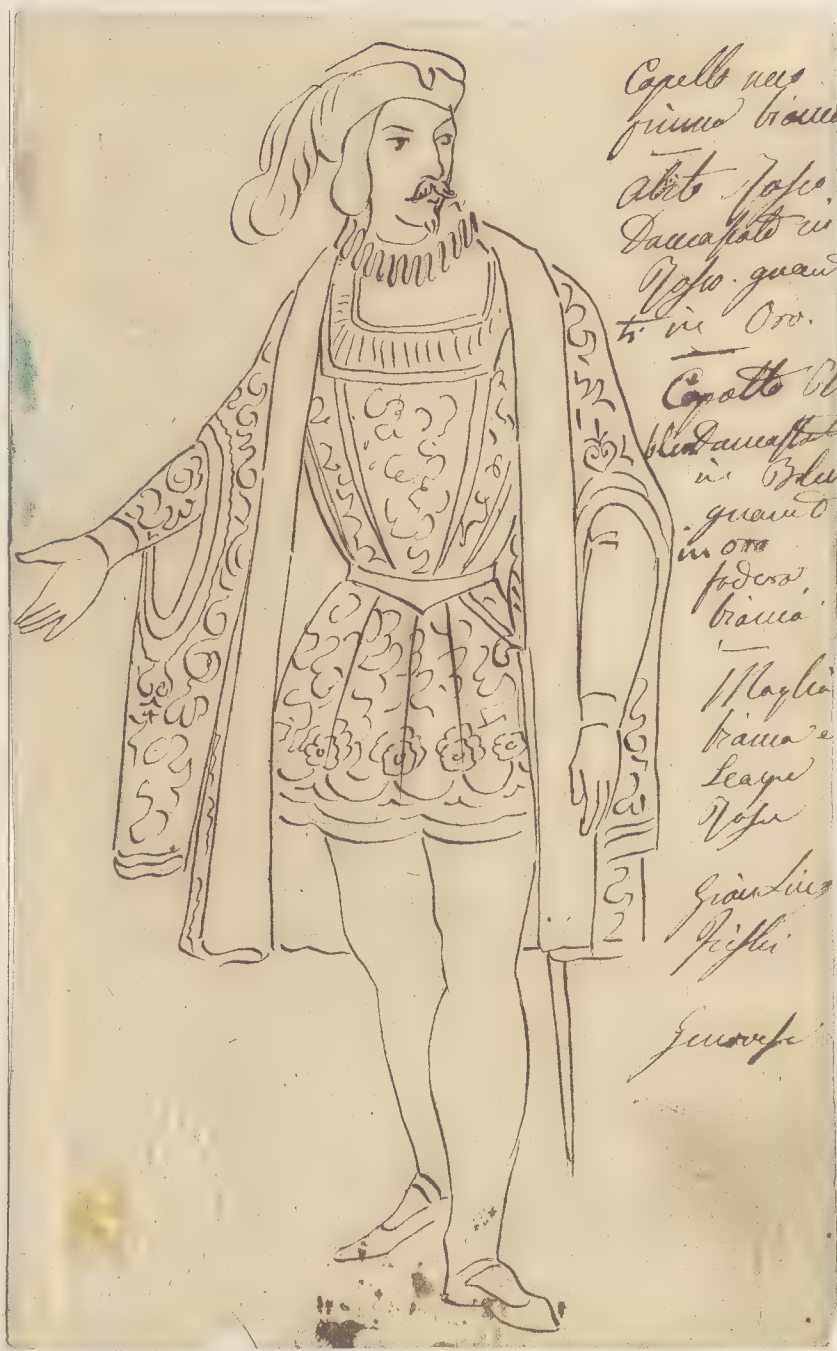 Capello nero
piuma bianca
abito Rosso
Damascato in
Rosso. guarni
ti in Oro.
Capotto
bleu Damascato
in Bleu
guarnit
in oro
fodera
bianca
Maglia
bianca e
Scarpe
Rosse
Gian Luigi
Fieschi
Genovese